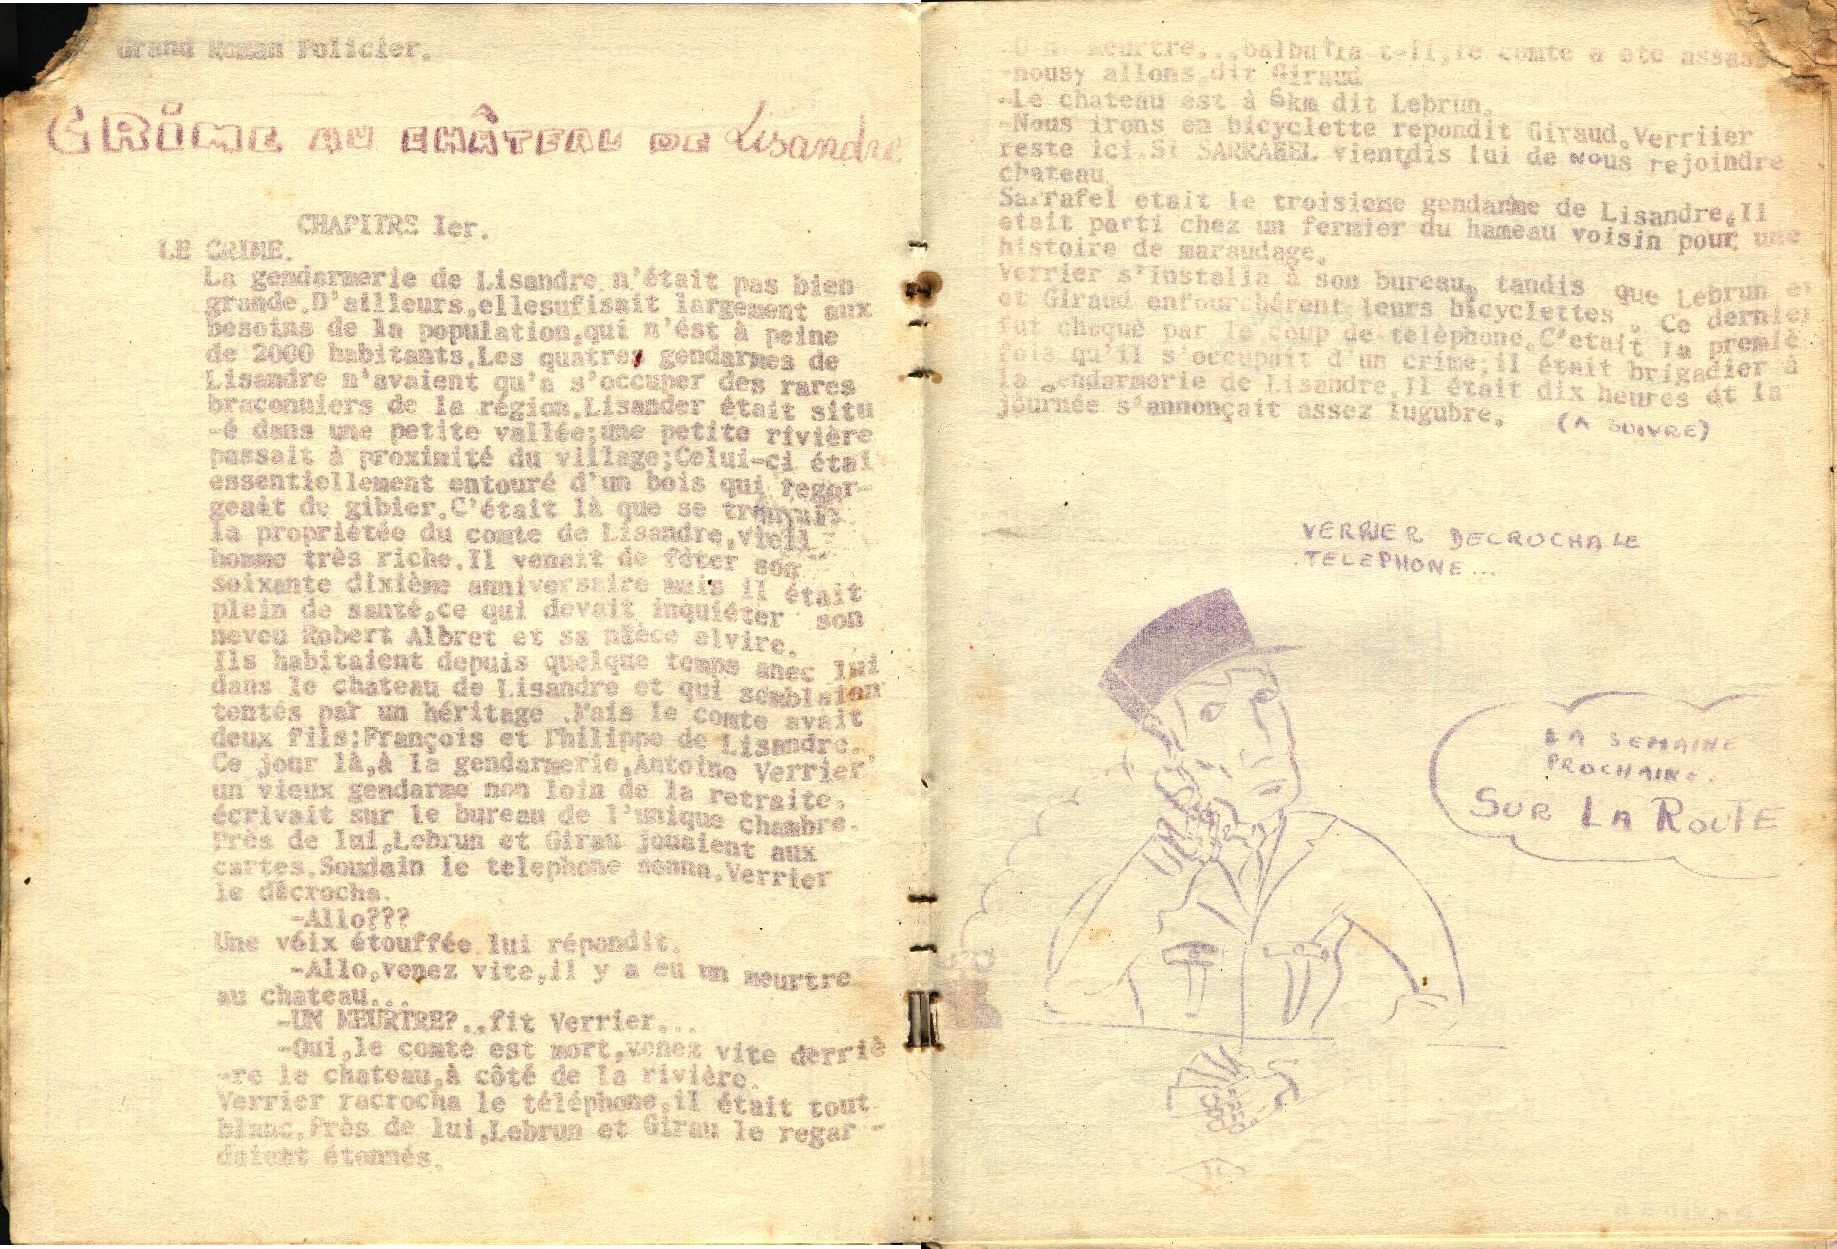 Grand Roman Policier.
CRIME AU CHÂTEAU DE Lisandre
CHAPITRE Ier.
LE CRIME.
La gendarmerie de Lisandre n'était pas bien
grande.D'ailleurs,ellesufisait largement aux
besoins de la population,qui n'ést à peine
de 2000 habitants.Les quatres gendarmes de
Lisandre n'avaient qu'a s'occuper des rares
braconniers de la région.Lisander était situ
-é dans une petite vallée;une petite rivière
passait à proximité du village;Celui-ci étai
essentiellement entouré d'un bois qui regor-
geait de gibier.C'était là que se
la propriétée du comte de Lisandre,vieil
homme très riche.Il venait de fêter son
soixante dixième anniversaire mais il était
plein de santé,ce qui devait inquiéter son
neveu Robert Albret et sa nièce elvire.
Ils habitaient depuis quelque temps anec lui
dans le chateau de Lisandre et qui semblaien
tentés par un héritage .Mais le comte avait
deux fils:François et Philippe de Lisandre.
Ce jour là,à la gendarmerie,Antoine Verrier
un vieux gendarme non loin de la retraite,
écrivait sur le bureau de l'unique chambre.
Près de lui,Lebrun et Girau jouaient aux
cartes.Soudain le telephone sonna.Verrier
le décrocha.
-Allo???
Une voix étouffée lui répondit.
-Allo,venez vite,il y a eu un meurtre
au chateau...
-UN MEURTRE?..fit Verrier...
-Oui,le comte est mort,venez vite derriè
-re le chateau,à côté de la rivière.
Verrier racrocha le téléphone,il était tout
blanc.Près de lui,Lebrun et Girau le regar -
daient étonnés.
meurtre...balbutia t-il,le comte a ete assas
-nousy allons,dit Giraud
-Le chateau est à 6km dit Lebrun.
-Nous irons en bicyclette repondit Giraud.Verriier
reste ici.Si SARRAFEL vient,dis lui de nous rejoindre
chateau
Sarrafel etait le troisieme gendarme de Lisandre.Il
etait parti chez un fermier du hameau voisin pour une
histoire de maraudage.
Verrier s'installa à son bureau, tandis que Lebrun et
et Giraud enfourchèrent leurs bicyclettes . Ce dernier
fut choqué par le coup de telèphone.C'etait la premiè
fois qu'il s'occupait d'un crime;il était brigadier à
la gendarmerie de Lisandre.Il était dix heures et la
journée s'annonçait assez lugubre. (A SUIVRE)
VERRIER DECROCHA LE
TELEPHONE...
LA SEMAINE
PROCHAINE.
SUR LA ROUTE